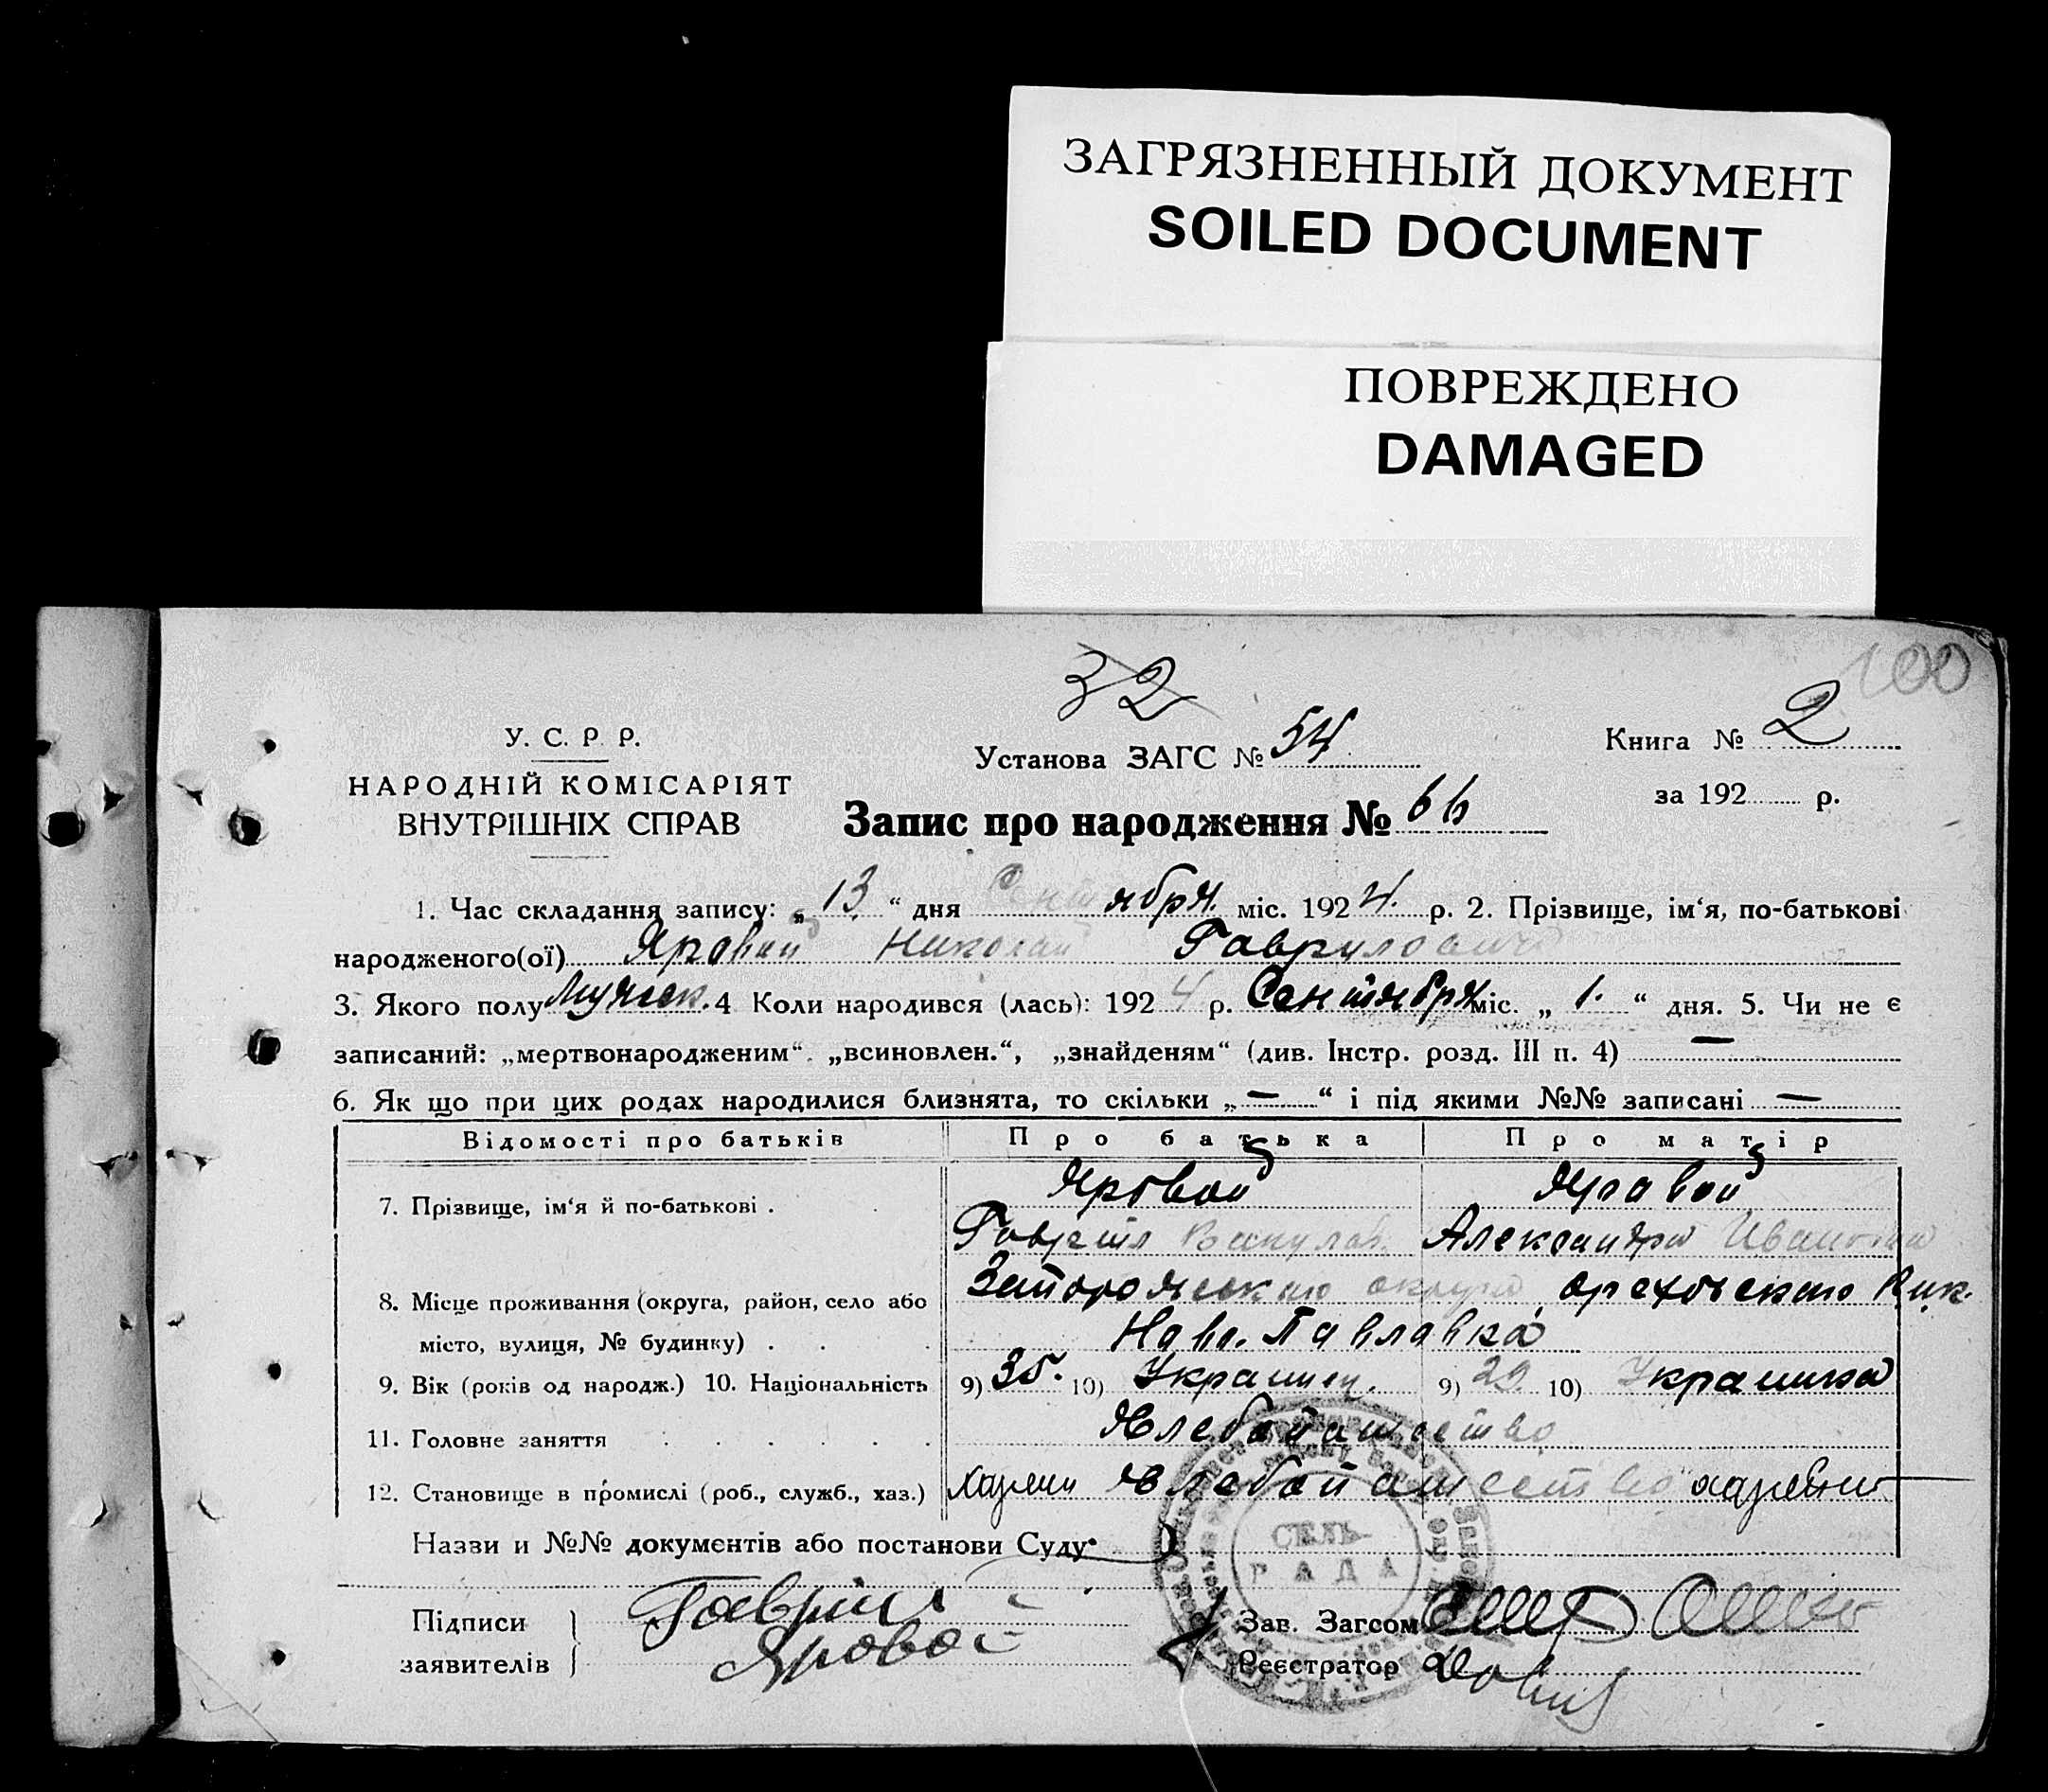 ЗАГРЯЗНЕННЫЙ ДОКУМЕНТ
SOILED DOCUMENT
ПОВРЕЖДЕНО
DAMAGED
100
32
У. С. Р. Р.
Установа ЗАГС № 54
Книга № 2
НАРОДНІЙ КОМІСАРІЯТ
ВНУТРІШНІХ СПРАВ
за 192 р.
Запис про народження № 66
1. Час складання запису: „13“ дня Сентября міс. 1924 р. 2. Прізвище, ім‘я, по-батькові
народженого(ої) Яровой Николай Гаврилович
3. Якого полу Мужск. 4 Коли народився (лась): 1924 р. Сентября міс. „1.“ дня. 5. Чи не є
записаний: „мертвонародженим“. „всиновлен.“, „знайденям“ (див. Інстр. розд. III п. 4) —
6. Як що при цих родах народилися близнята, то скільки „—“ і під якими №№ записані —
Відомості про батьків Про батька Про матір
7. Прізвище, ім‘я й по-батькові . Яровой Яравой
Гавриіл Вакулов. Александра Ивановна
8. Місце проживання (округа, район, село або Запорожского округа, Ореховского
місто, вулиця, № будинку) . . . Ново. Павлавка
9. Вік (років од народж.) 10. Національність 9) 35. 10) Украинец. 9) 29. 10) Украинка
11. Головне заняття . . . . . . Хлебопашество
12. Становище в промислі (роб., служб., хаз.) Хазяин Хлебопашество
Назви и №№ документів або постанови Суду
СЕЛЬ-
РАДА
Підписи Гавриіл
заявителів Яровой
Зав. Загсом
Реєстратор